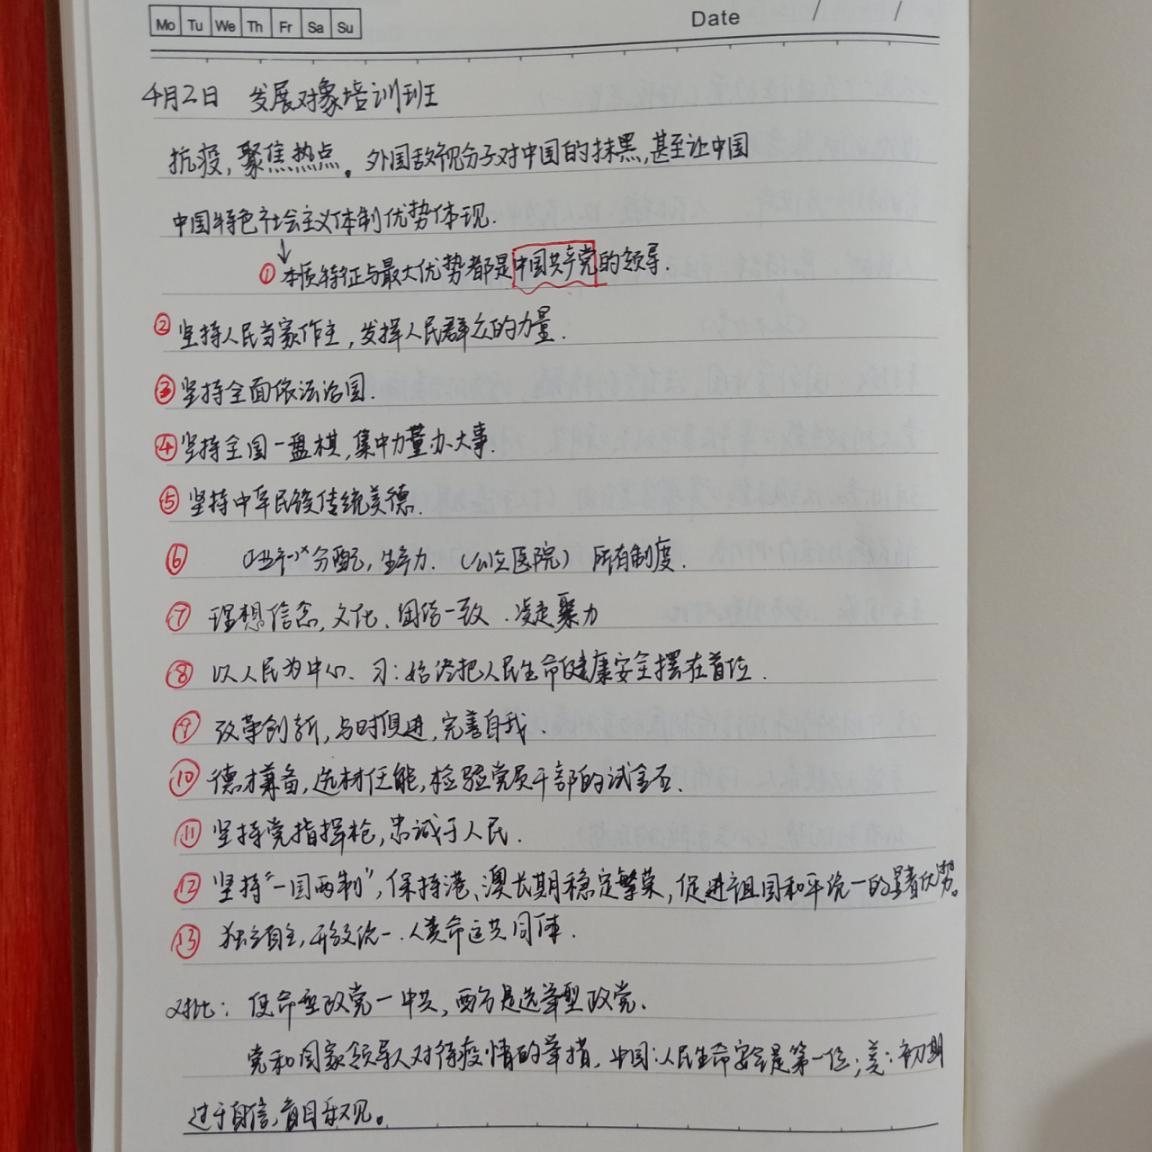 Mo Tu We Th Fr Sa Su
Date / /
4月2日 发展对象培训班
抗疫,聚焦热点。外国敌视分子对中国的抹黑,甚至让中国
中国特色社会主义体制优势体现.
①本质特征与最大优势都是中国共产党的领导.
②坚持人民当家作主,发挥人民群众的力量.
③坚持全面依法治国.
④坚持全国一盘棋,集中力量办大事.
⑤坚持中华民族传统美德.
⑥ 分配,生产力.(公立医院)所有制度.
⑦ 理想信念,文化、团结一致.凝聚力
⑧ 以人民为中心、习:始终把人民生命健康安全摆在首位.
⑨ 改革创新,与时俱进,完善自我.
⑩ 德才兼备,选材任能,检验党员干部的试金石.
⑪ 坚持党指挥枪,忠诚于人民.
⑫ 坚持“一国两制”,保持港、澳长期稳定繁荣,促进祖国和平统一的显著优势。
⑬ 独立自主,统一.人类命运共同体.
对比: 使命型政党一中共,西方是选举型政党.
党和国家领导人对待疫情的举措,中国:人民生命安全是第一位;美:初期
过于自信,盲目乐观。